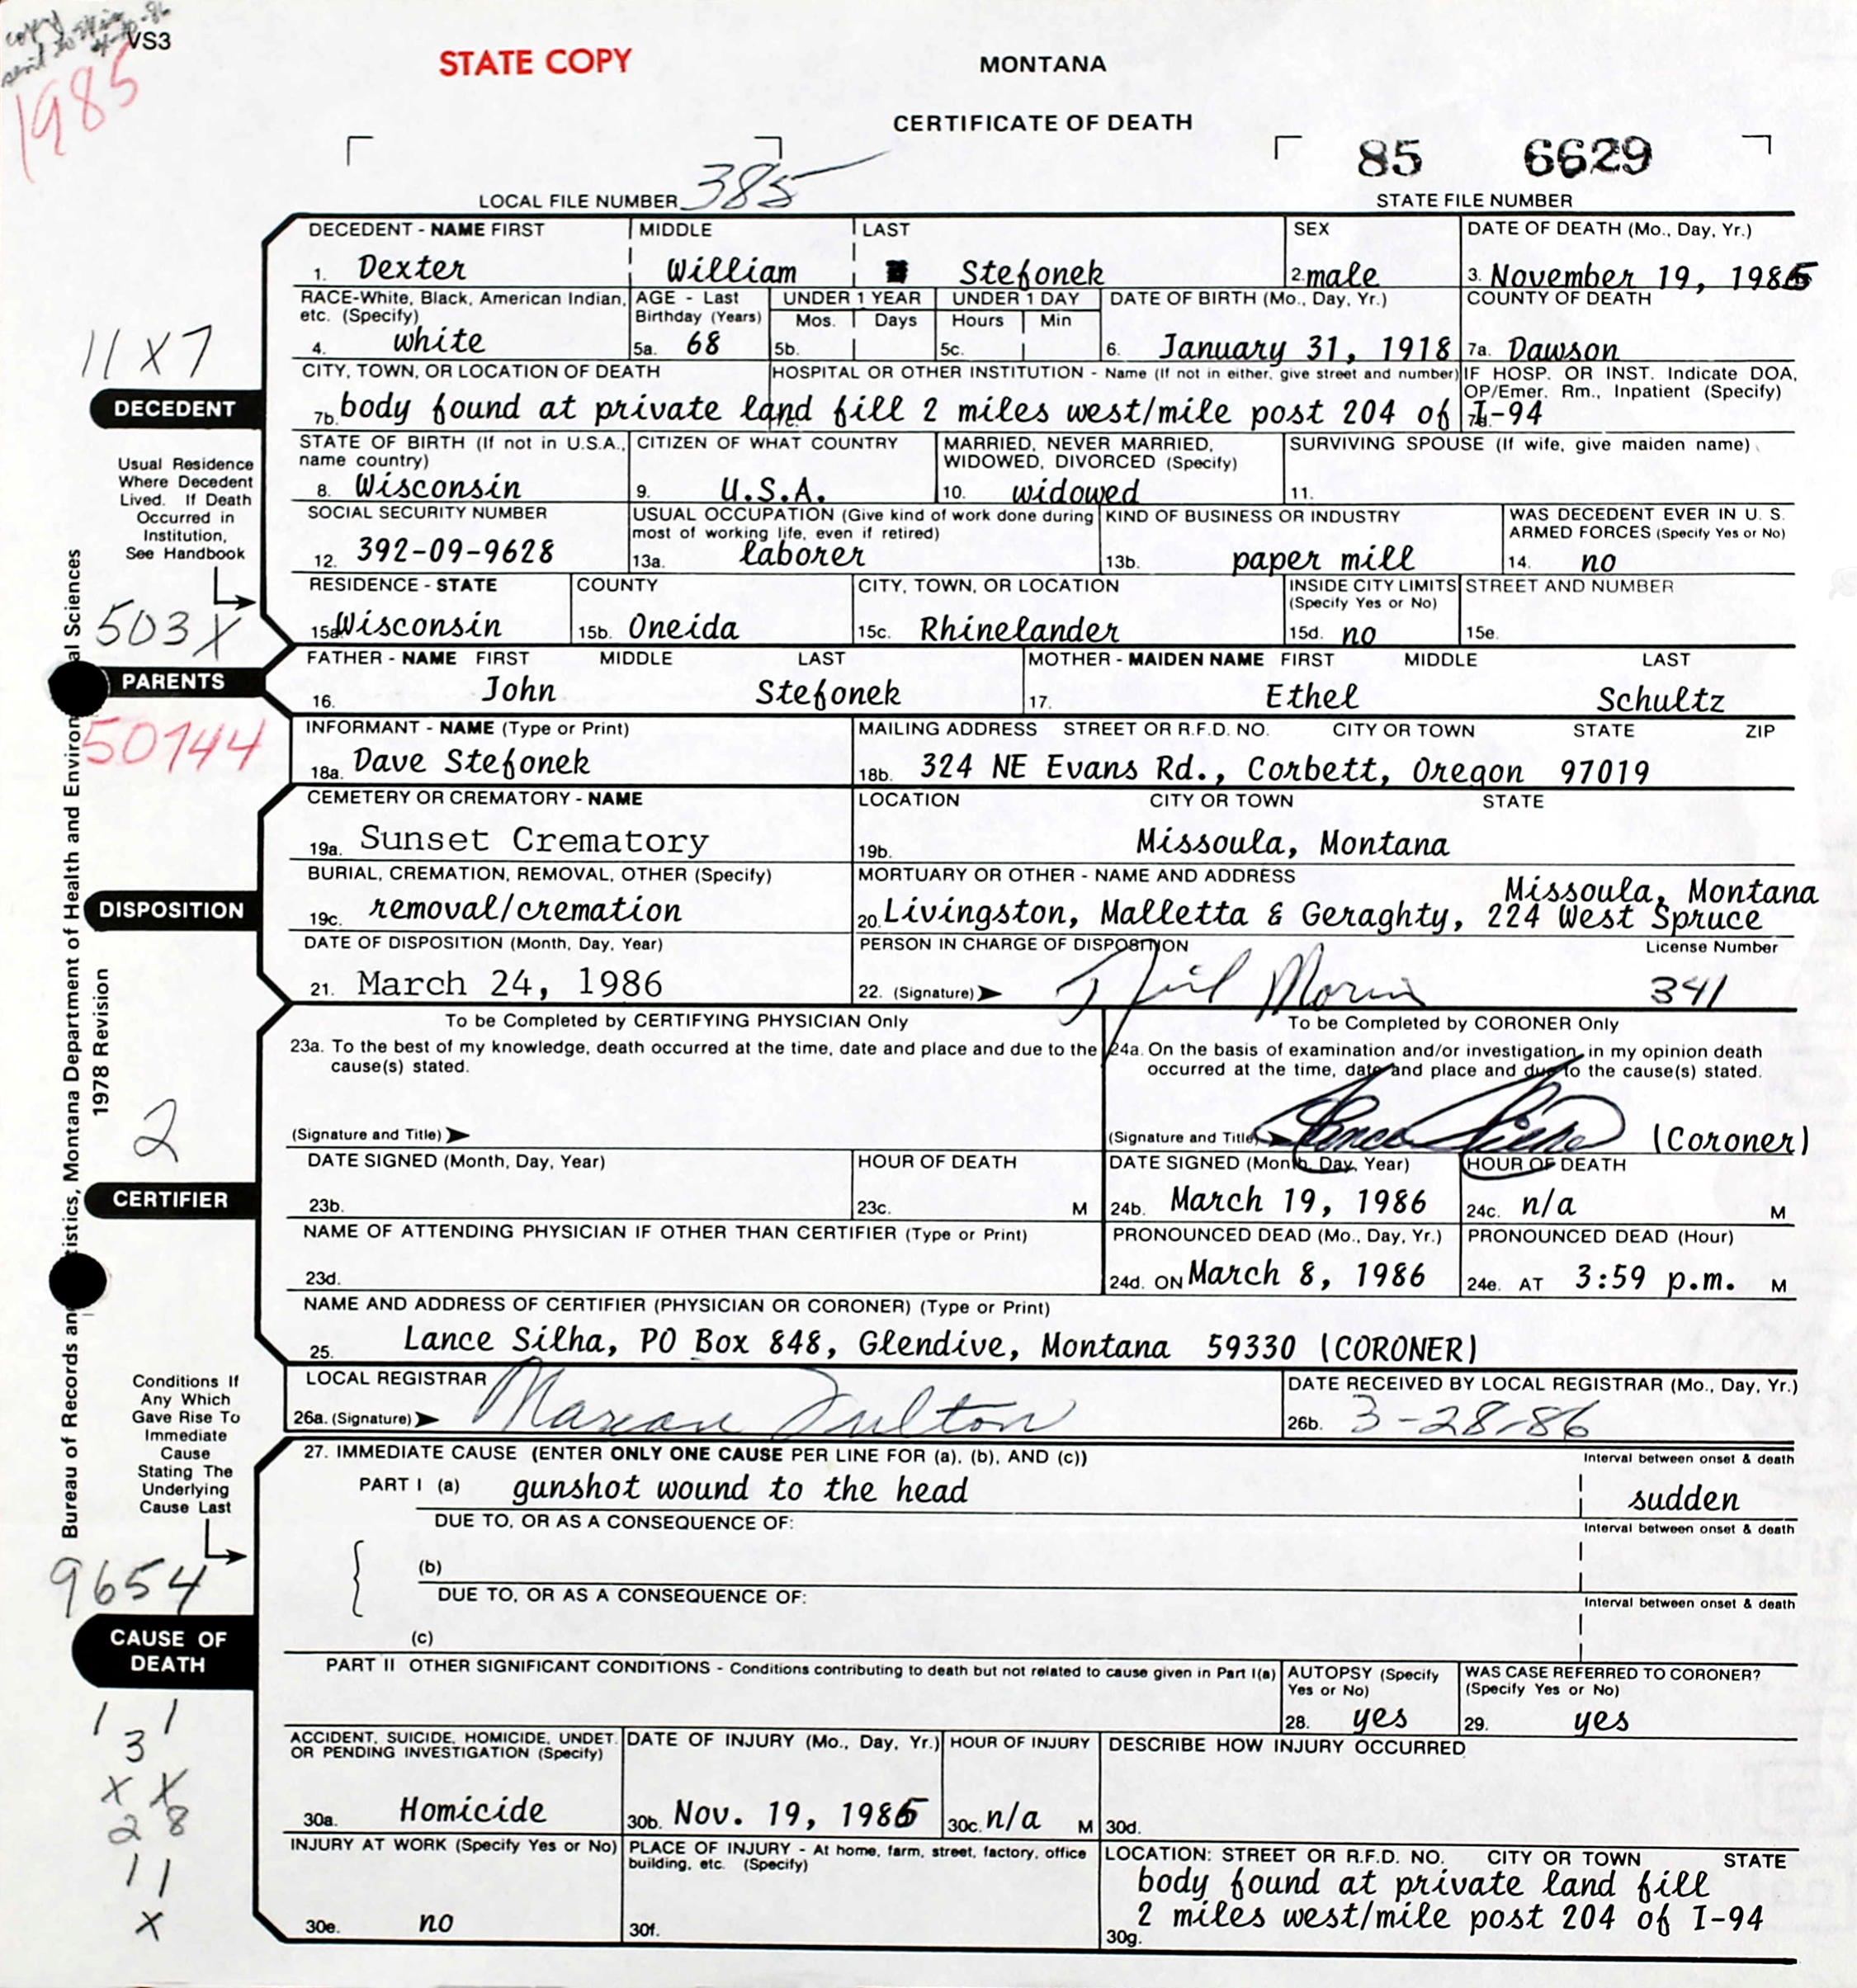 copy
sent to
1985
VS3
STATE COPY
MONTANA
CERTIFICATE OF DEATH
85 6629
LOCAL FILE NUMBER 385
STATE FILE NUMBER
DECEDENT - NAME FIRST MIDDLE LAST SEX DATE OF DEATH (Mo., Day, Yr.)
1. Dexter William Stefonek 2. male 3. November 19, 1985
RACE-White, Black, American Indian, etc. (Specify) AGE - Last Birthday (Years) UNDER 1 YEAR Mos. Days UNDER 1 DAY Hours Min DATE OF BIRTH (Mo., Day, Yr.) COUNTY OF DEATH
4. white 5a. 68 5b. 5c. 6. January 31, 1918 7a. Dawson
11 X 7
DECEDENT
CITY, TOWN, OR LOCATION OF DEATH HOSPITAL OR OTHER INSTITUTION - Name (If not in either, give street and number) IF HOSP. OR INST. Indicate DOA, OP/Emer. Rm., Inpatient (Specify)
7b. body found at private land fill 2 miles west/mile post 204 of I-94
STATE OF BIRTH (If not in U.S.A., name country) CITIZEN OF WHAT COUNTRY MARRIED, NEVER MARRIED, WIDOWED, DIVORCED (Specify) SURVIVING SPOUSE (If wife, give maiden name)
8. Wisconsin 9. U.S.A. 10. widowed 11.
Usual Residence
Where Decedent
Lived. If Death
Occurred in
Institution,
See Handbook
SOCIAL SECURITY NUMBER USUAL OCCUPATION (Give kind of work done during most of working life, even if retired) KIND OF BUSINESS OR INDUSTRY WAS DECEDENT EVER IN U. S. ARMED FORCES (Specify Yes or No)
12. 392-09-9628 13a. laborer 13b. paper mill 14. no
RESIDENCE - STATE COUNTY CITY, TOWN, OR LOCATION INSIDE CITY LIMITS (Specify Yes or No) STREET AND NUMBER
15a. Wisconsin 15b. Oneida 15c. Rhinelander 15d. no 15e.
503X
PARENTS
FATHER - NAME FIRST MIDDLE LAST MOTHER - MAIDEN NAME FIRST MIDDLE LAST
16. John Stefonek 17. Ethel Schultz
50744
INFORMANT - NAME (Type or Print) MAILING ADDRESS STREET OR R.F.D. NO. CITY OR TOWN STATE ZIP
18a. Dave Stefonek 18b. 324 NE Evans Rd., Corbett, Oregon 97019
CEMETERY OR CREMATORY - NAME LOCATION CITY OR TOWN STATE
19a. Sunset Crematory 19b. Missoula, Montana
DISPOSITION
BURIAL, CREMATION, REMOVAL, OTHER (Specify) MORTUARY OR OTHER - NAME AND ADDRESS Missoula, Montana
19c. removal/cremation 20. Livingston, Malletta & Geraghty, 224 West Spruce
DATE OF DISPOSITION (Month, Day, Year) PERSON IN CHARGE OF DISPOSITION License Number
21. March 24, 1986 22. (Signature) 341
To be Completed by CERTIFYING PHYSICIAN Only To be Completed by CORONER Only
23a. To the best of my knowledge, death occurred at the time, date and place and due to the cause(s) stated.
24a. On the basis of examination and/or investigation, in my opinion death occurred at the time, date and place and due to the cause(s) stated.
(Signature and Title) (Signature and Title) Lance Silha (Coroner)
2
CERTIFIER
DATE SIGNED (Month, Day, Year) HOUR OF DEATH DATE SIGNED (Month, Day, Year) HOUR OF DEATH
23b. 23c. M 24b. March 19, 1986 24c. n/a M
NAME OF ATTENDING PHYSICIAN IF OTHER THAN CERTIFIER (Type or Print) PRONOUNCED DEAD (Mo., Day, Yr.) PRONOUNCED DEAD (Hour)
23d. 24d. ON March 8, 1986 24e. AT 3:59 p.m. M
NAME AND ADDRESS OF CERTIFIER (PHYSICIAN OR CORONER) (Type or Print)
25. Lance Silha, PO Box 848, Glendive, Montana 59330 (CORONER)
LOCAL REGISTRAR DATE RECEIVED BY LOCAL REGISTRAR (Mo., Day, Yr.)
26a. (Signature) Marian Fulton 26b. 3-28-86
Conditions If
Any Which
Gave Rise To
Immediate
Cause
Stating The
Underlying
Cause Last
27. IMMEDIATE CAUSE (ENTER ONLY ONE CAUSE PER LINE FOR (a), (b), AND (c)) Interval between onset & death
PART I (a) gunshot wound to the head sudden
DUE TO, OR AS A CONSEQUENCE OF: Interval between onset & death
(b)
DUE TO, OR AS A CONSEQUENCE OF: Interval between onset & death
(c)
9654
CAUSE OF
DEATH
PART II OTHER SIGNIFICANT CONDITIONS - Conditions contributing to death but not related to cause given in Part I(a) AUTOPSY (Specify Yes or No) WAS CASE REFERRED TO CORONER? (Specify Yes or No)
28. yes 29. yes
ACCIDENT, SUICIDE, HOMICIDE, UNDET. OR PENDING INVESTIGATION (Specify) DATE OF INJURY (Mo., Day, Yr.) HOUR OF INJURY DESCRIBE HOW INJURY OCCURRED
30a. Homicide 30b. Nov. 19, 1985 30c. n/a M 30d.
INJURY AT WORK (Specify Yes or No) PLACE OF INJURY - At home, farm, street, factory, office building, etc. (Specify) LOCATION: STREET OR R.F.D. NO. CITY OR TOWN STATE
body found at private land fill
30e. no 30f. 30g. 2 miles west/mile post 204 of I-94
1 1
3
X X
2 8
1 1
X
Bureau of Records and Statistics, Montana Department of Health and Environmental Sciences
1978 Revision